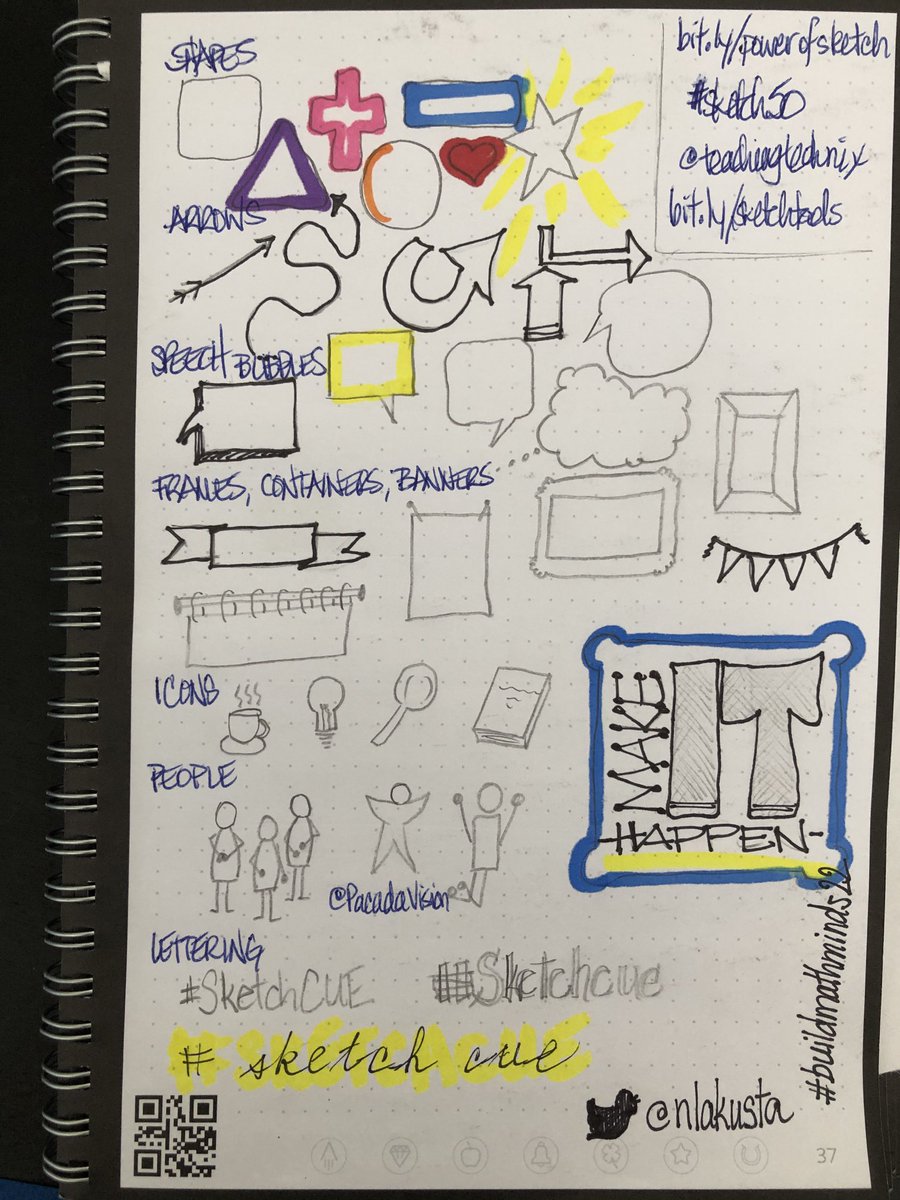 SHAPES
bit.ly/powerofsketch
#sketch50
@teachingtechnix
bit.ly/sketchtools
ARROWS
SPEECH BUBBLES
FRAMES, CONTAINERS, BANNERS
ICONS
MAKE
IT
HAPPEN
PEOPLE
@PacadaVision
LETTERING
#SketchCUE
#Sketchcue
#SKETCHCUE
# sketch cue
#buildmathminds22
@nlakusta
37